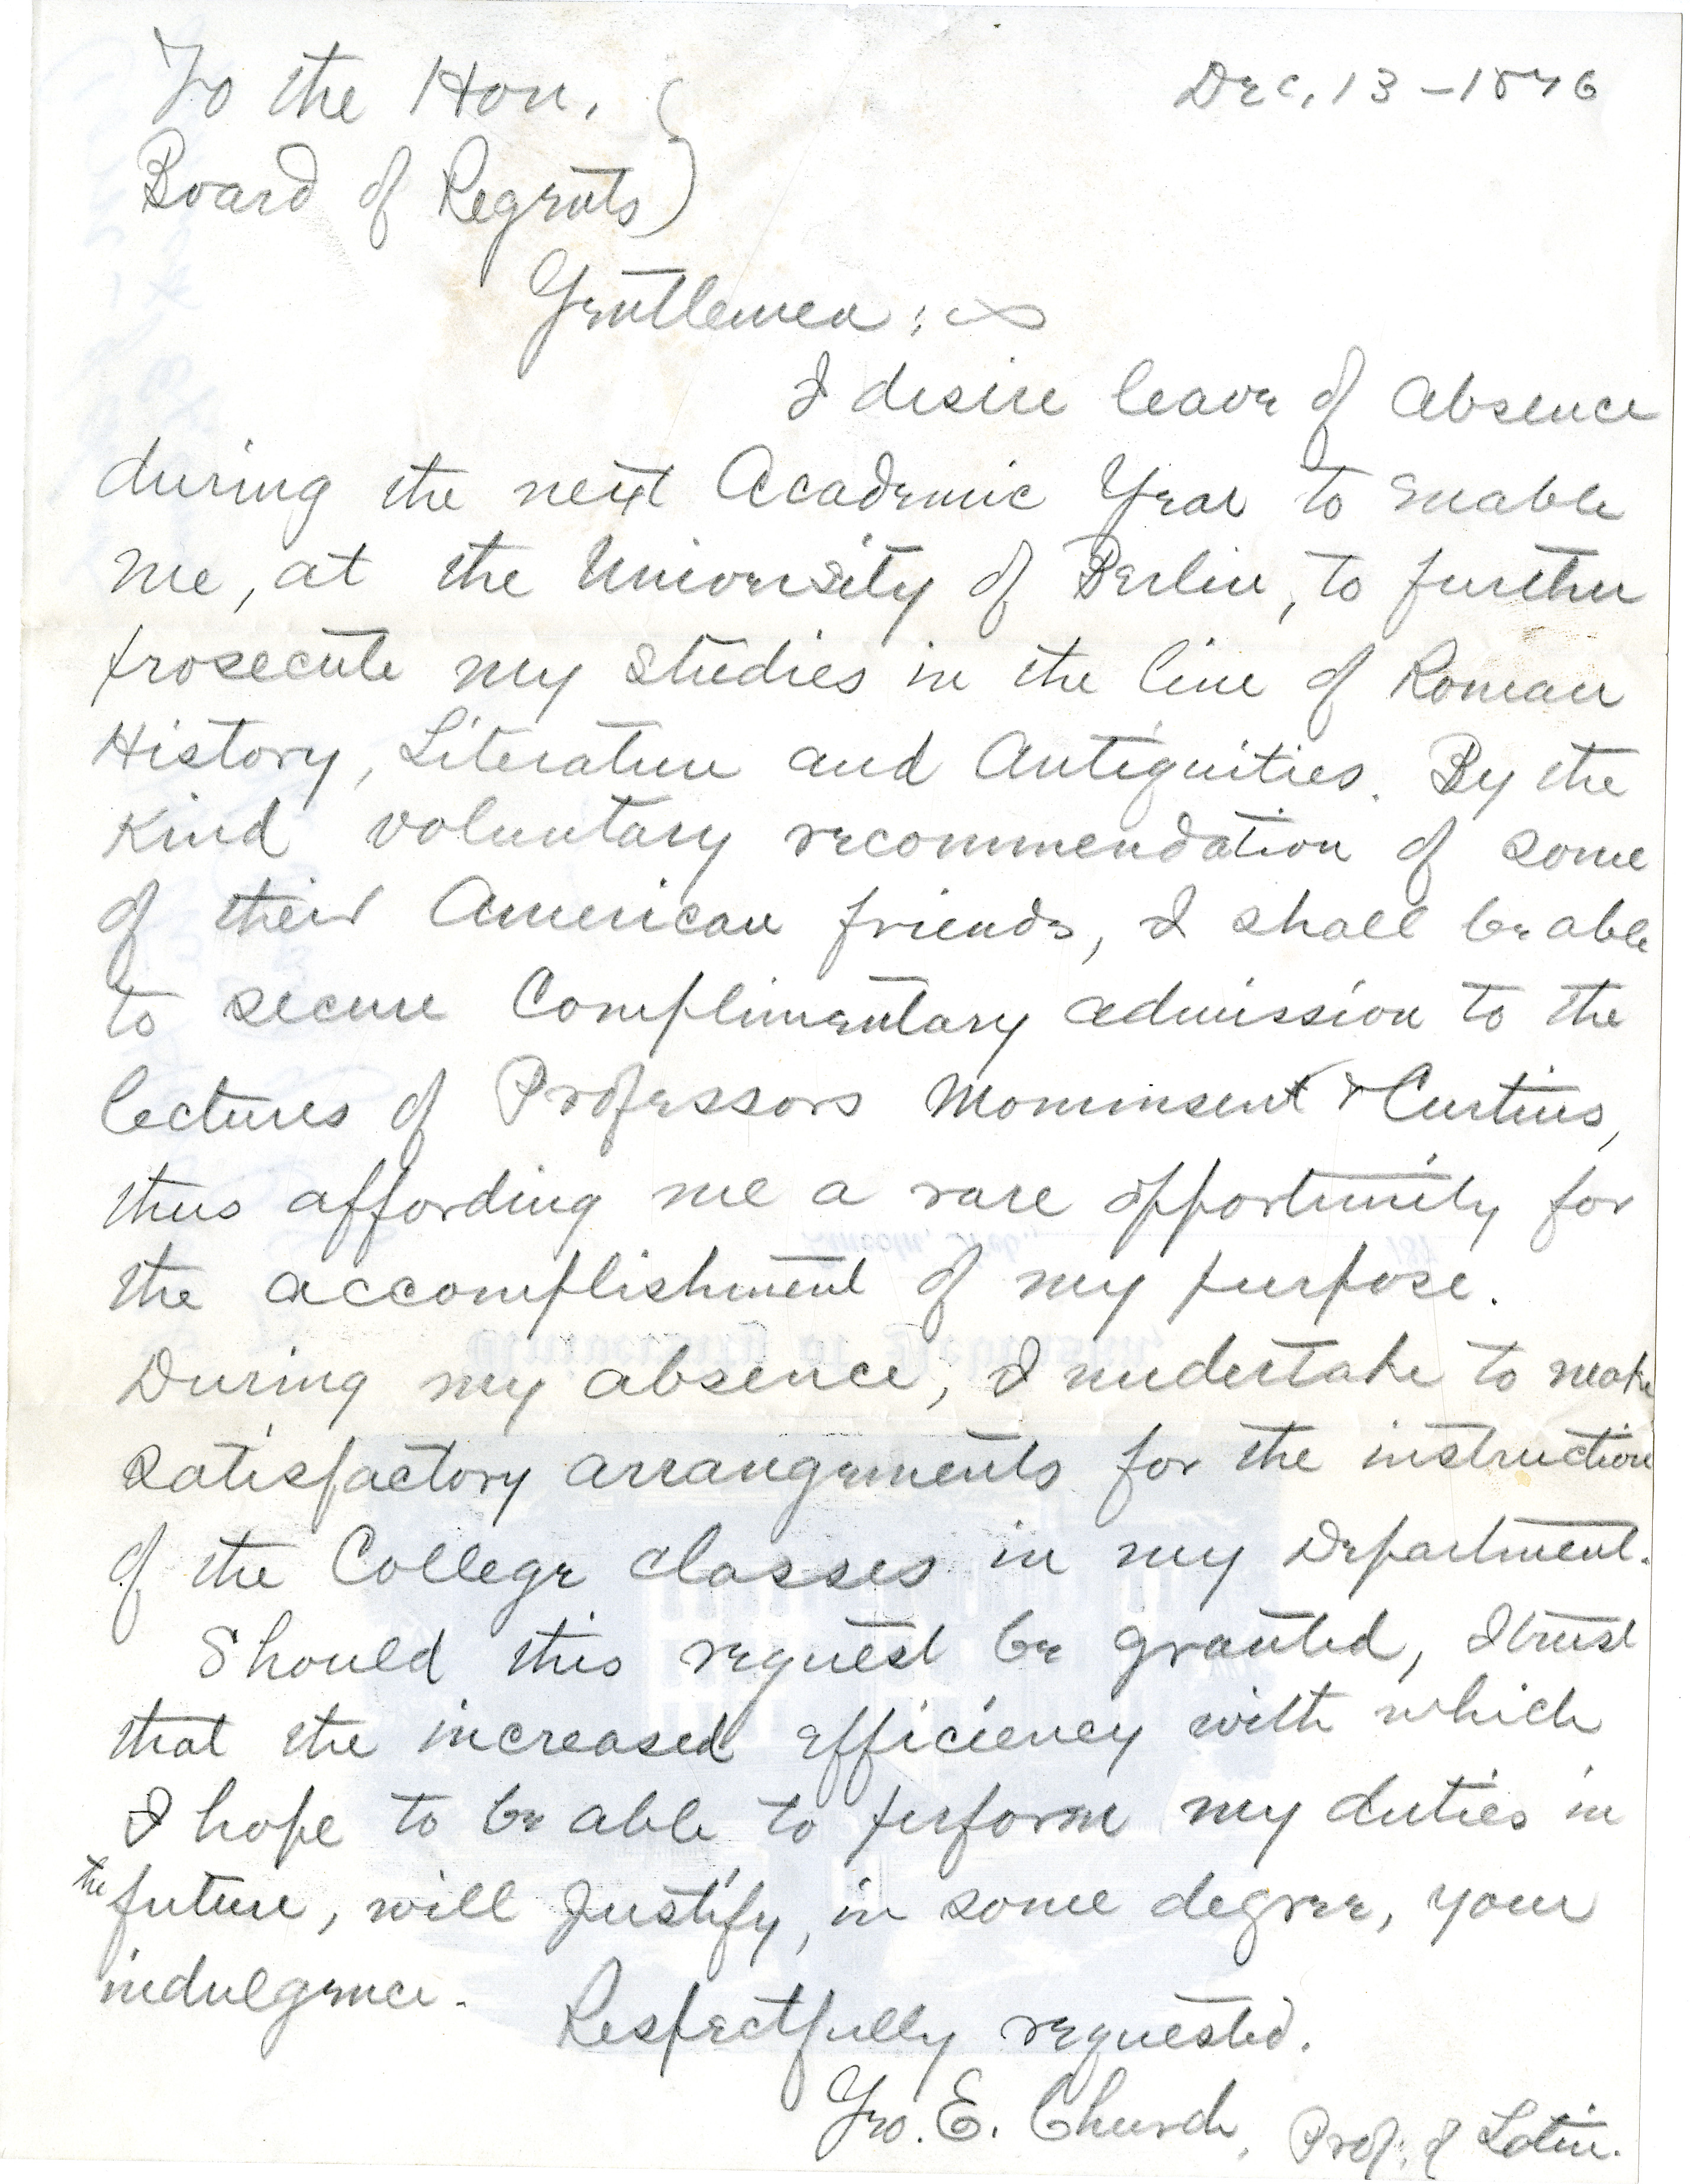 To the Hon.
Dec. 13 - 1876
Board of Regents)
Gentlemen :
I desire leave of Absence
during the next Academic Year to enable
me, at the University of Berlin, to further
prosecute my studies in the line of Roman
History, Literature and Antiquities. By the
Kind voluntary recommendation of some
of their American friends, I shall be able
to secure Complimentary admission to the
lectures of Professors Mommsen & Curtius,
thus affording me a rare opportunity for
the accomplishment of my purpose.
During my absence, I undertake to make
satisfactory arrangements for the instruction
of the College classes in my Department.
Should this request be granted, I trust
that the increased efficiency with which
I hope to be able to perform my duties in
the future, will Justify, in some degree, your
indulgence.
Respectfully requested.
Geo. E. Church, Prof. of Latin.